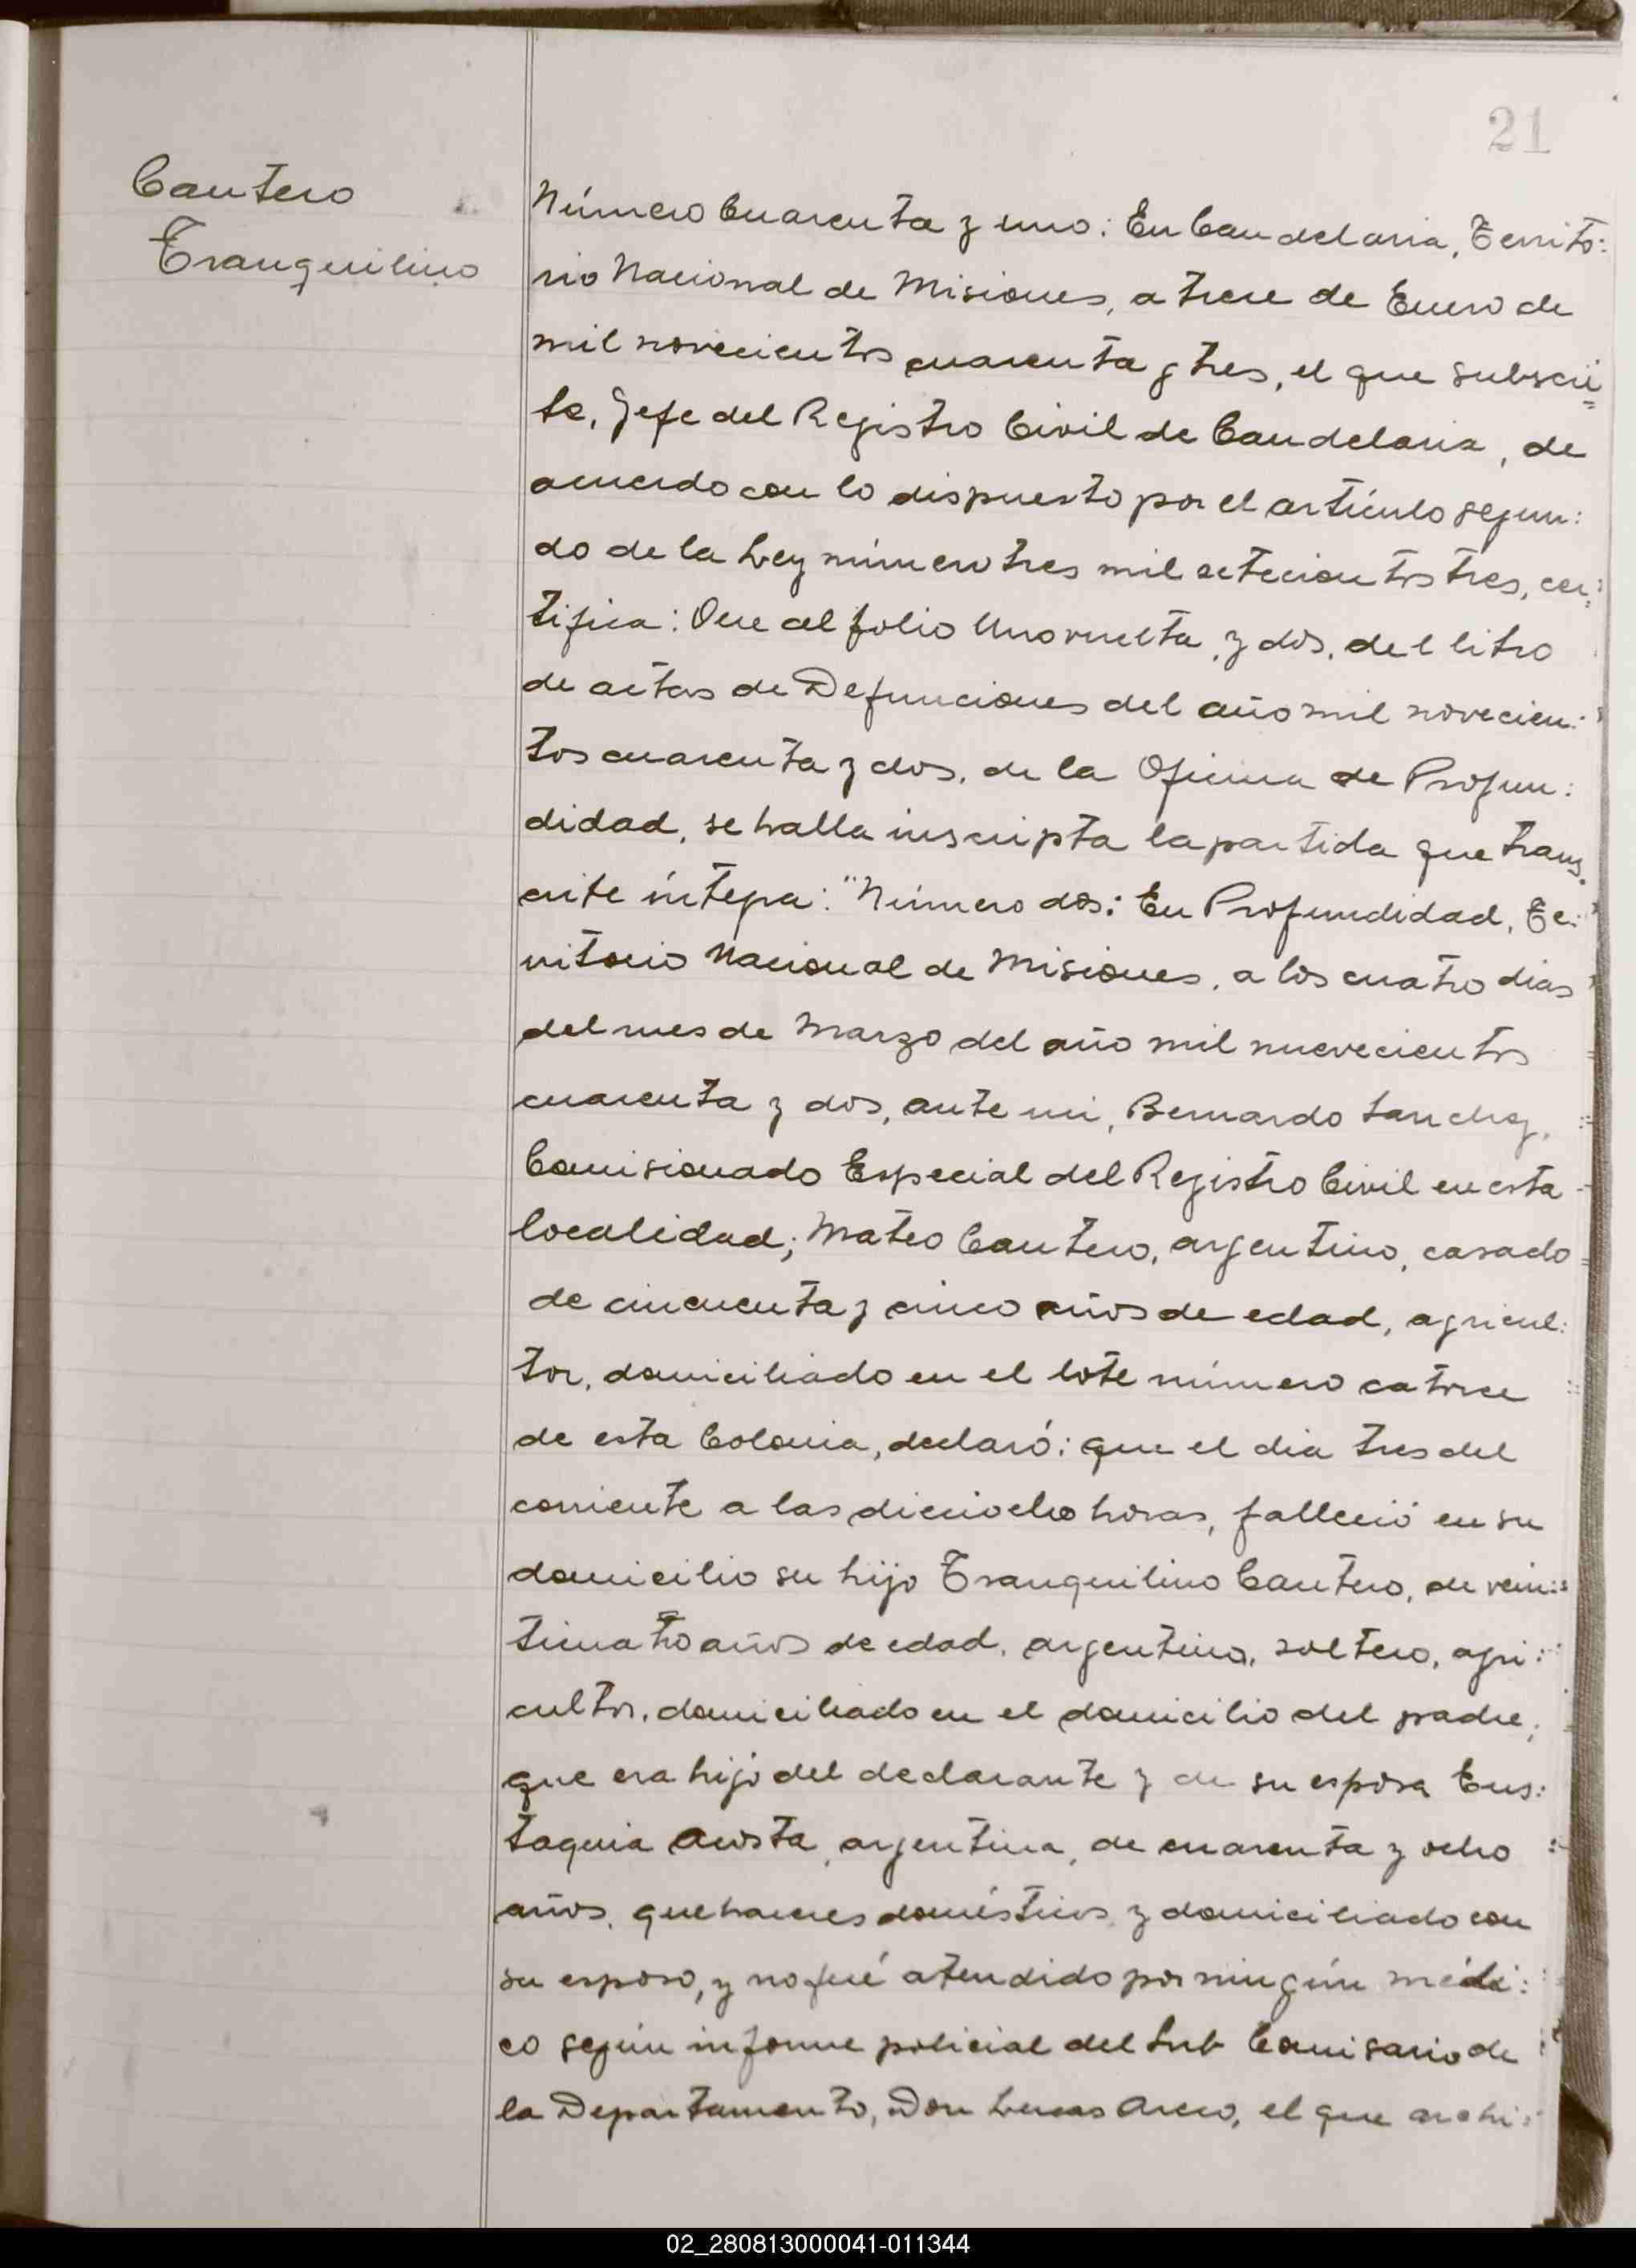 21
Cantero
Tranquilino
Número Cuarenta y uno: En Candelaria, Territo:
rio Nacional de Misiones, a trece de Enero de
mil novecientos cuarenta y tres, el que subscri=
be, Jefe del Registro Civil de Candelaria, de
acuerdo con lo dispuesto por el artículo segun:
do de la Ley número tres mil setecientos tres, cer:
tifica: Que al folio Uno vuelta, y dos, del libro
de actas de Defunciones del año mil novecien:
tos cuarenta y dos, de la Oficina de Profun:
didad, se halla inscripta la partida que trans
cribe íntegra: "Número dos: En Profundidad, Te:
rritorio Nacional de Misiones, a los cuatro dias
del mes de Marzo del año mil nuevecientos
cuarenta y dos, ante mi, Bernardo Sanchez,
Comisionado Especial del Registro Civil en esta
localidad; Mateo Cantero, argentino, casado
de cincuenta y cinco años de edad, agricul:
tor, domiciliado en el lote número catorce
de esta Colonia, declaró: que el dia tres del
corriente a las dieciocho horas, falleció en su
domicilio su hijo Tranquilino Cantero, de vein:
ticuatro años de edad, argentino, soltero, agri:
cultor, domiciliado en el domicilio del padre,
que era hijo del declarante y de su esposa Eus:
taquia Acosta, argentina, de cuarenta y ocho
años, quehaceres domésticos y domiciliado con
su esposo, y no fué atendido por ningún médi:
co según informe policial del Sub Comisario de
la Departamento, Don Lucas Areco, el que archi:
02_280813000041-011344